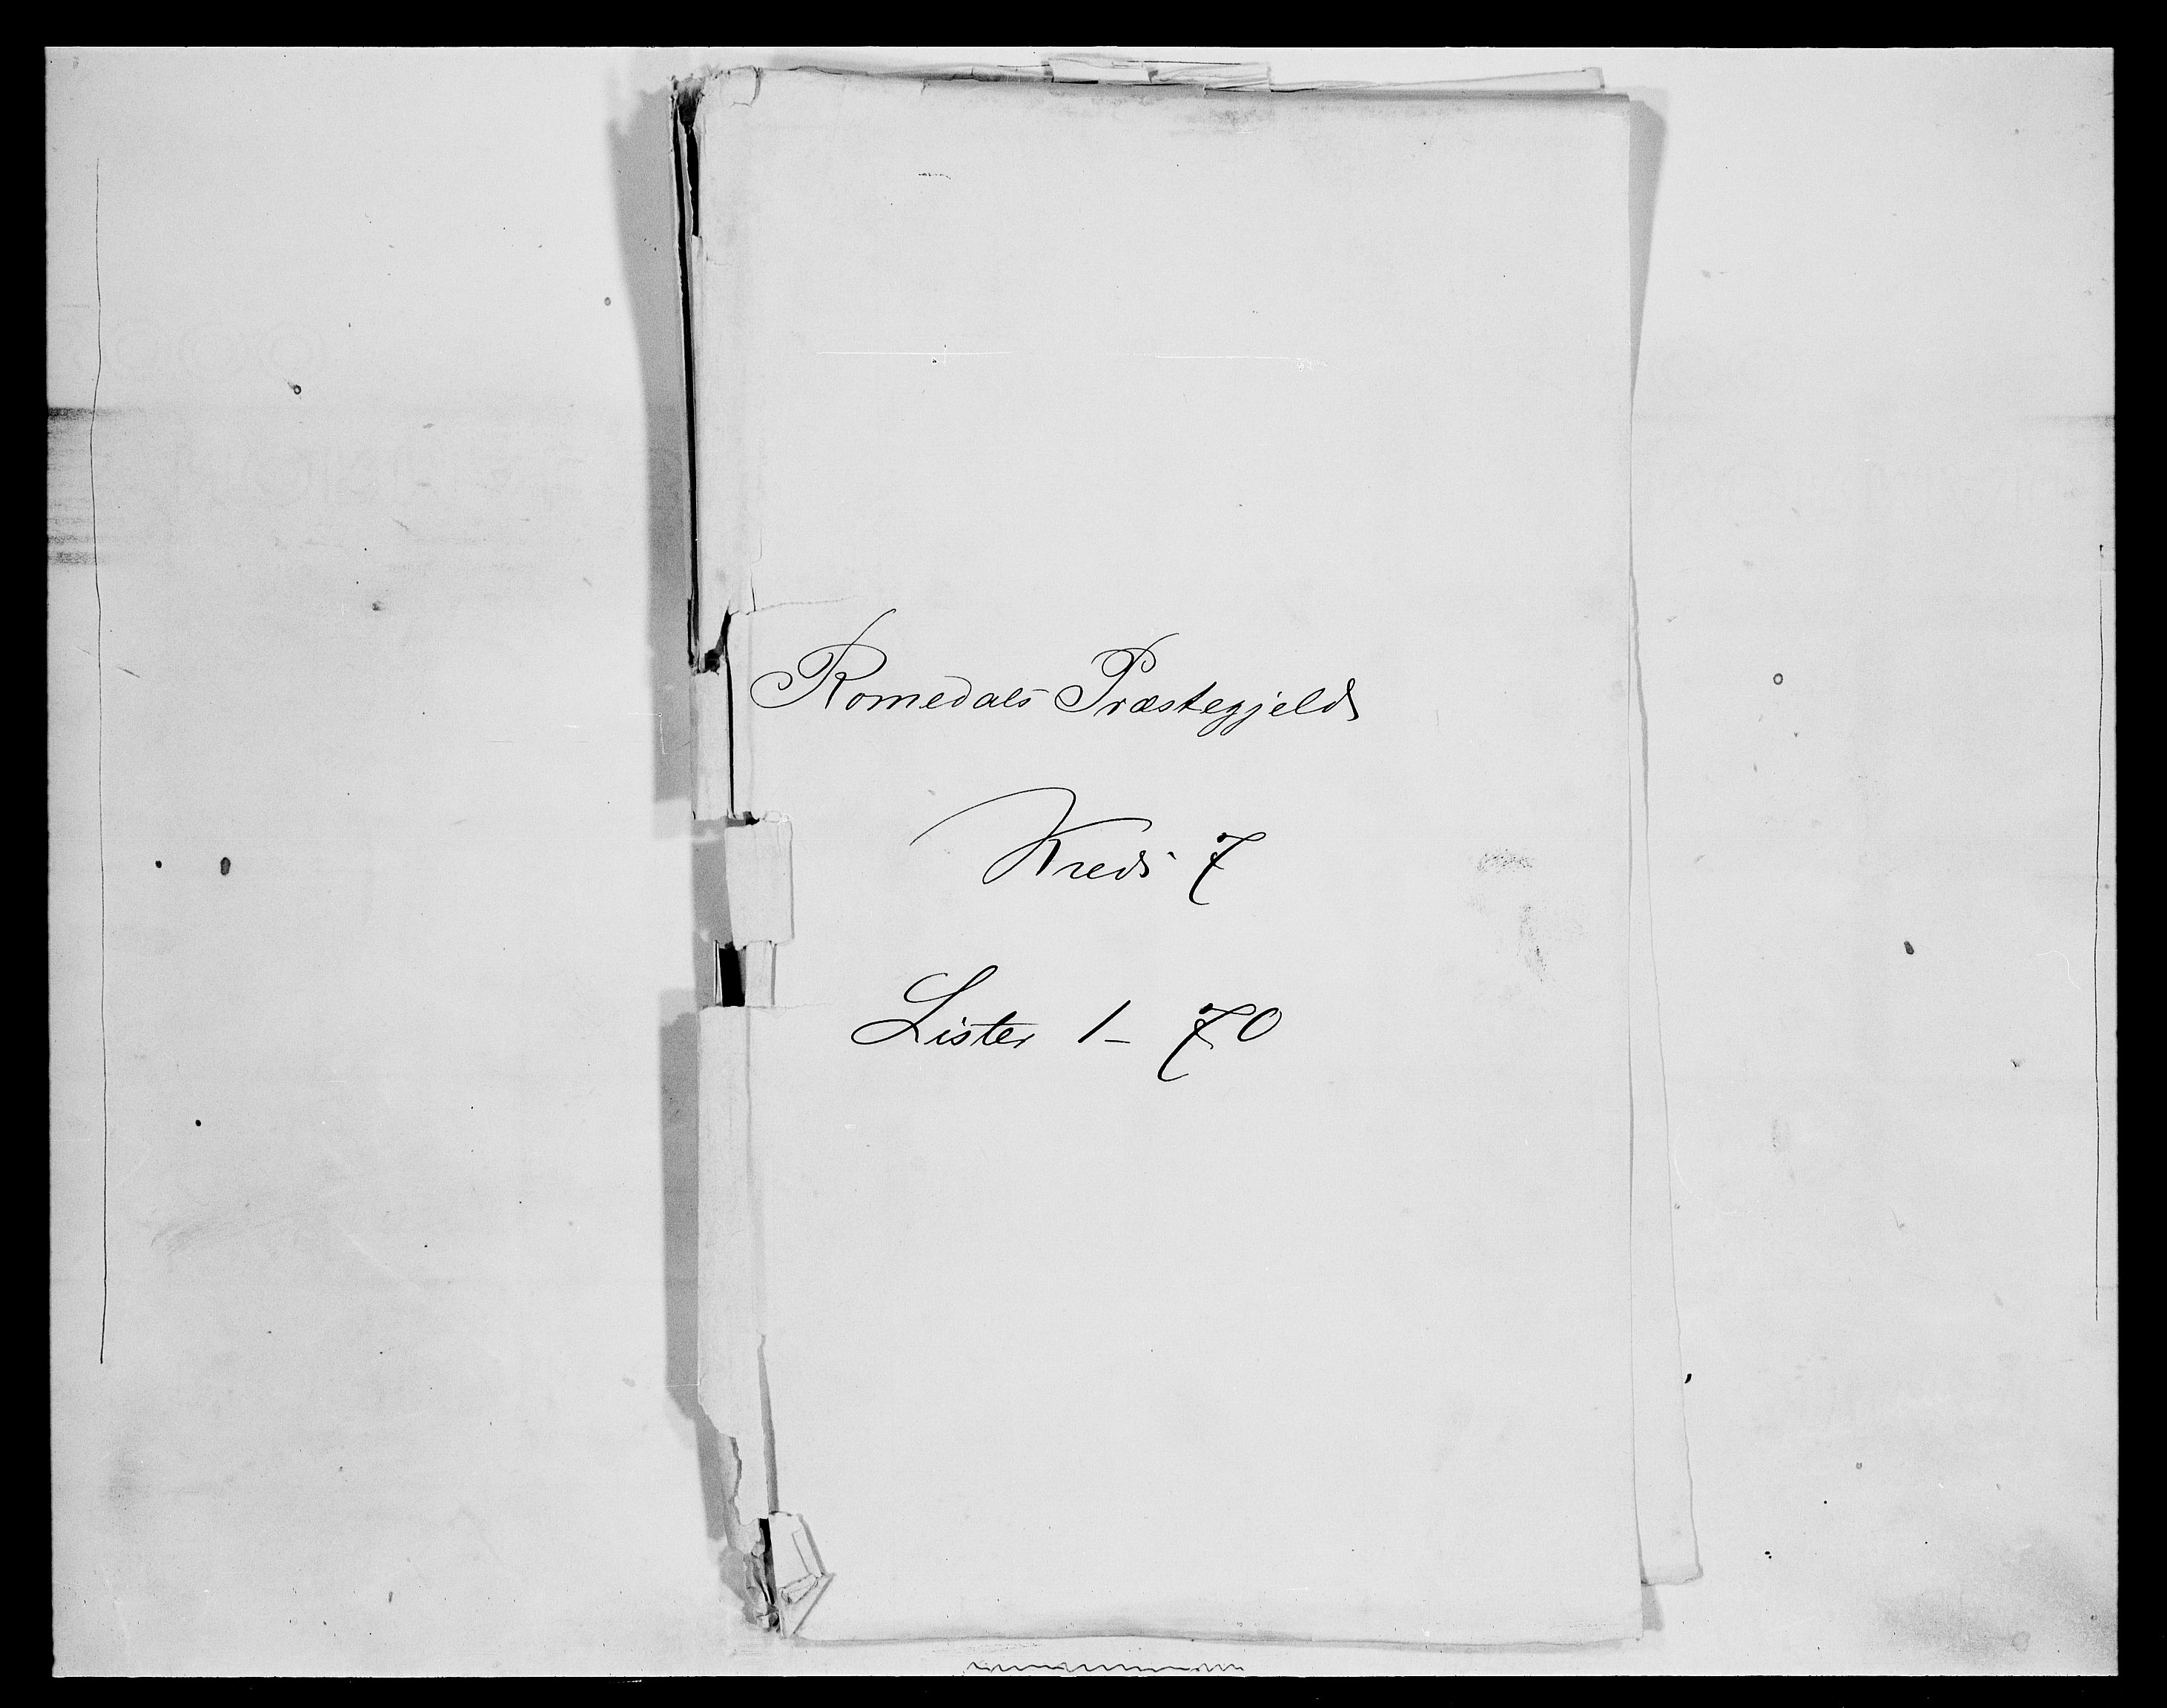 Romedals Præstegjeld
Kreds 7
Lister 1 - 70